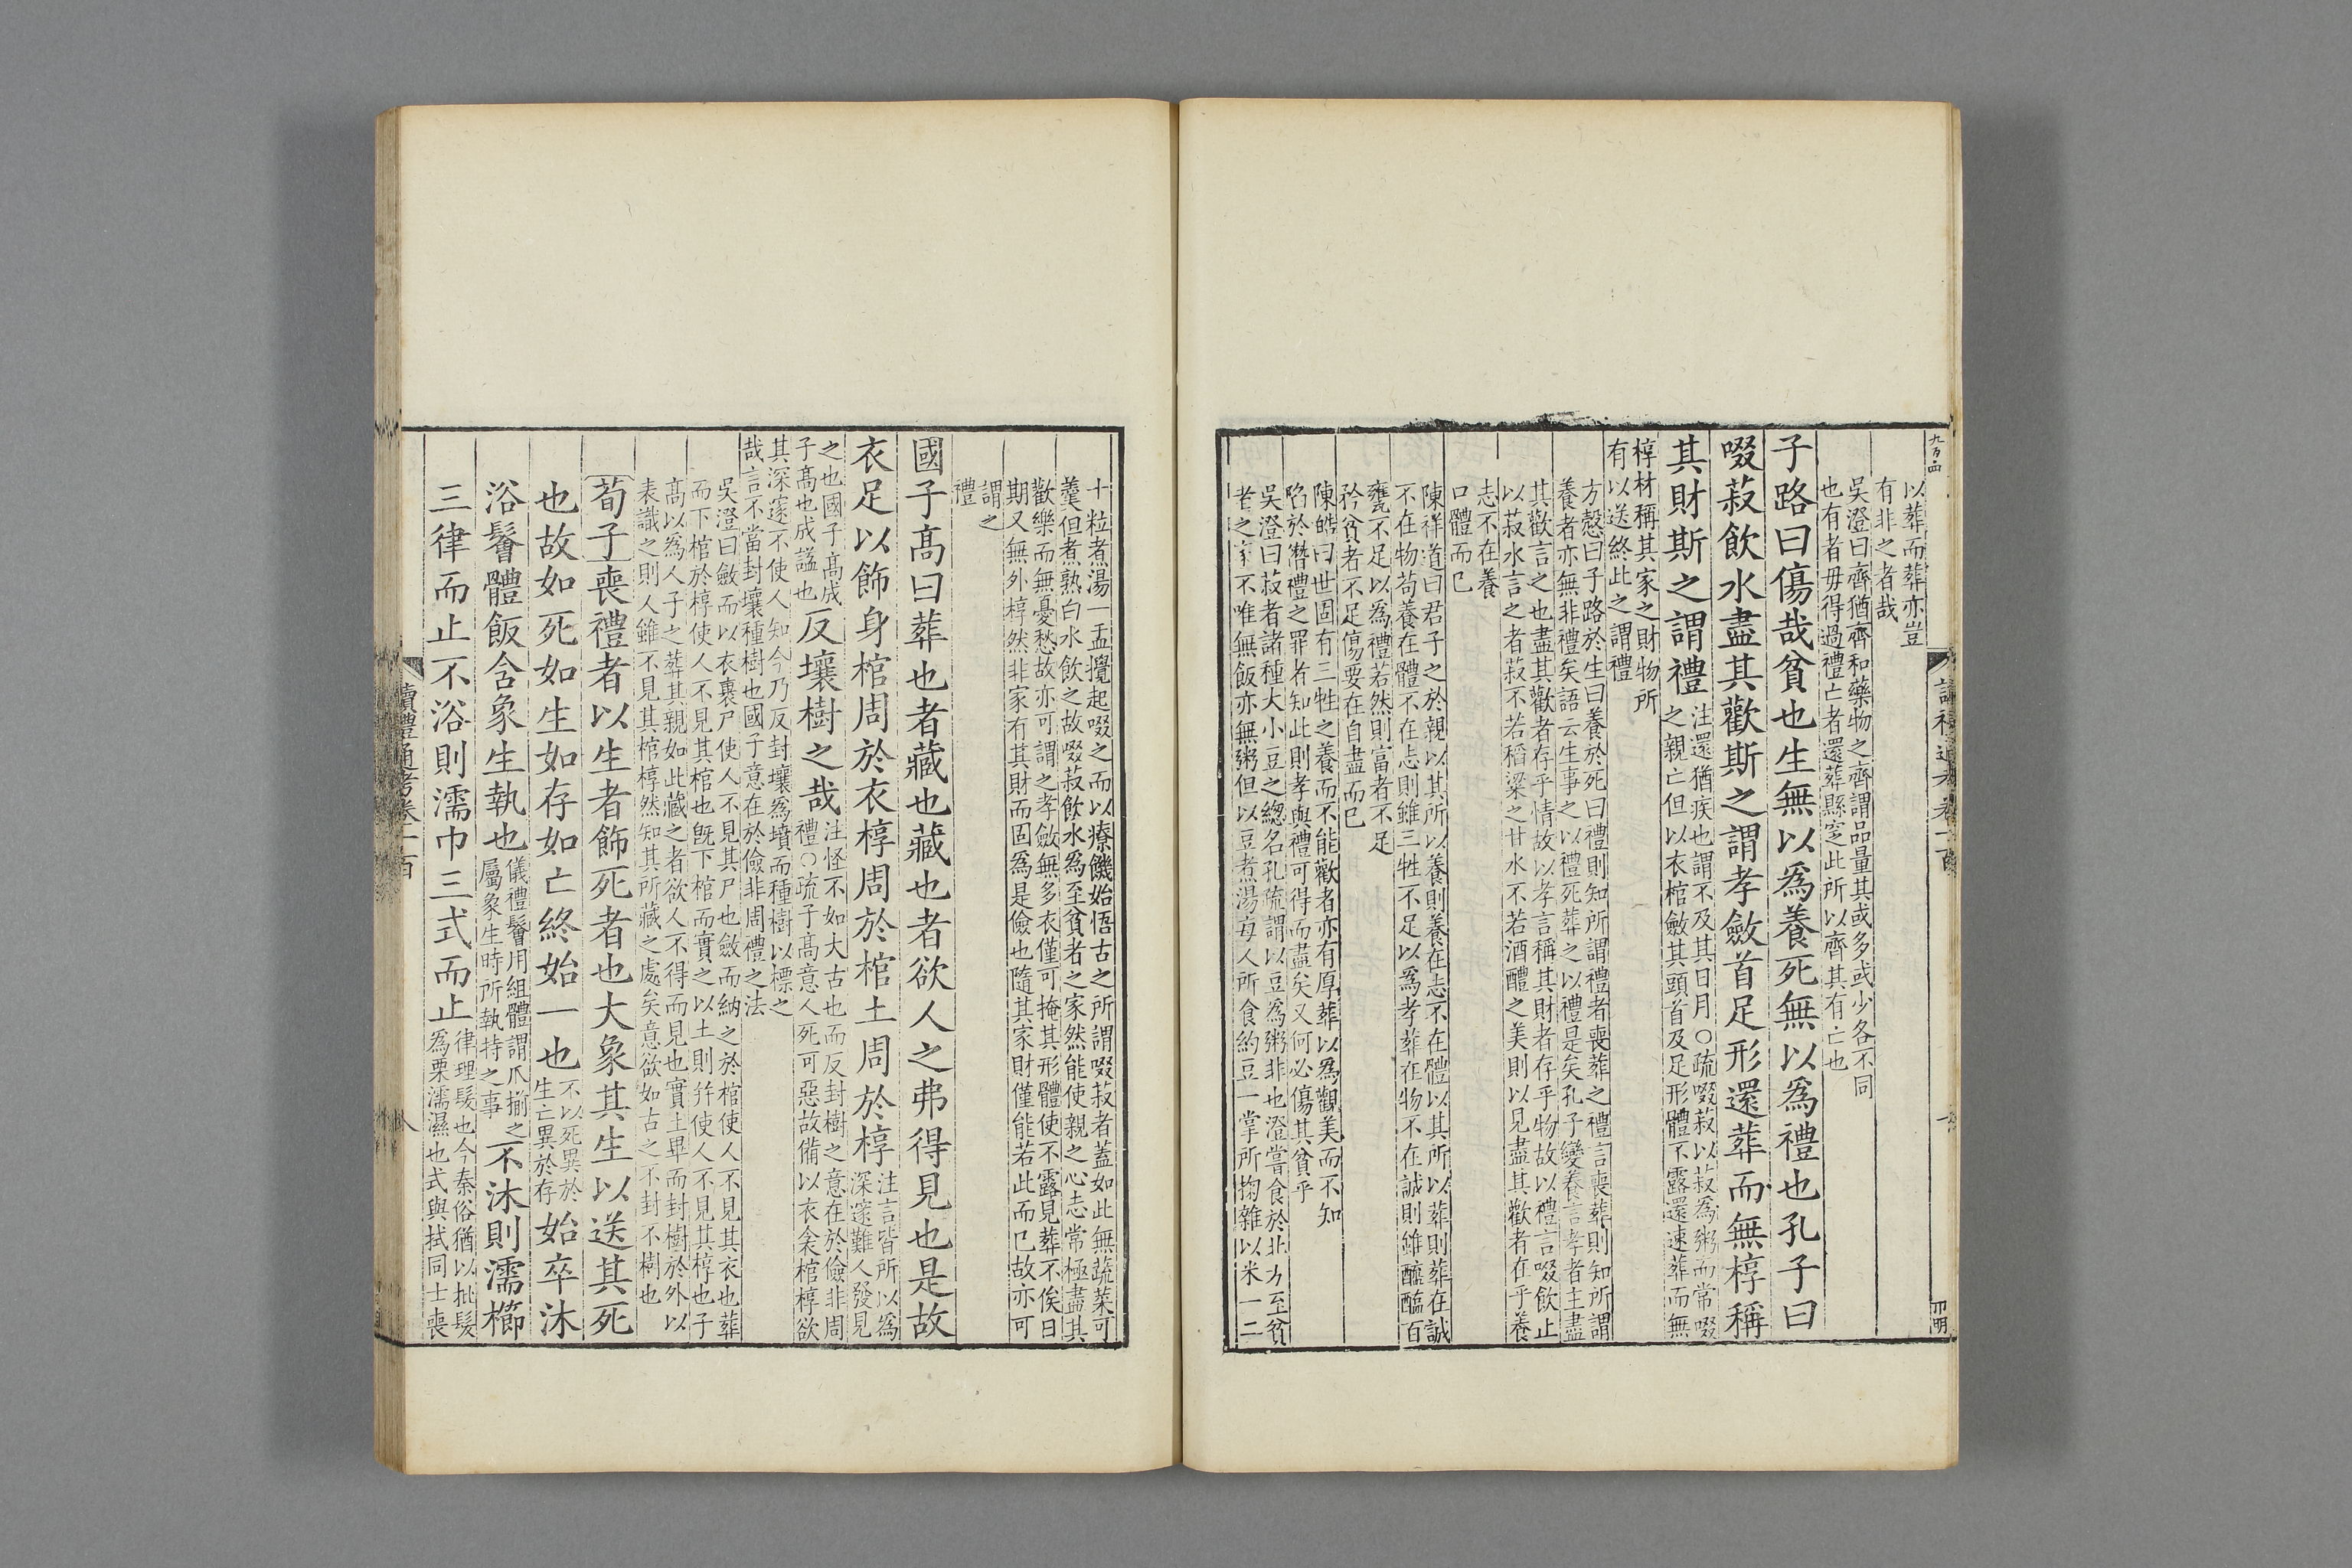 九百四
讀禮通考卷一百
以葬而葬亦豈
有非之者哉
吳澄曰齊猶齊和藥物之齊謂品量其或多或少各不同
也有者毋得過禮亡者還葬縣窆此所以齊其有亡也
子路曰傷哉貧也生無以爲養死無以爲禮也孔子曰
啜菽飲水盡其歡斯之謂孝斂首足形還葬而無椁稱
其財斯之謂禮
注還猶疾也謂不及其日月○疏啜菽以菽爲粥而常啜
之親亡但以衣棺斂其頭首及足形體不露還速葬而無
椁材稱其家之財物所
有以送終此之謂禮
方慤曰子路於生曰養於死曰禮則知所謂禮者喪葬之禮言喪葬則知所謂
養者亦無非禮矣語云生事之以禮死葬之以禮是矣孔子變養言孝者主盡
其歡言之也盡其歡者存乎情故以孝言稱其財者存乎物故以禮言啜飲止
以菽水言之者菽不若稻粱之甘水不若酒醴之美則以見盡其歡者在乎養
志不在養
口體而已
陳祥道曰君子之於親以其所以養則養在志不在體以其所以葬則葬在誠
不在物苟養在體不在志則雖三牲不足以爲孝葬在物不在誠則雖醯醢百
甕不足以爲禮若然則富者不足
矜貧者不足傷要在自盡而已
陳皓曰世固有三牲之養而不能歡者亦有厚葬以爲觀美而不知
陷於僭禮之罪者知此則孝與禮可得而盡矣又何必傷其貧乎
吳澄曰菽者諸種大小豆之總名孔疏謂以豆爲粥非也澄嘗食於北方至貧
者之家不唯無飯亦無粥但以豆煮湯每人所食約豆一掌所掬雜以米一二
十粒煮湯一盂攪起啜之而以療饑始悟古之所謂啜菽者蓋如此無蔬菜可
羹但煮熟白水飲之故啜菽飲水爲至貧者之家然能使親之心志常極盡其
歡樂而無憂愁故亦可謂之孝斂無多衣僅可掩其形體使不露見葬不俟日
期又無外椁然非家有其財而固爲是儉也隨其家財僅能若此而已故亦可
謂之
禮
國子高曰葬也者藏也藏也者欲人之弗得見也是故
衣足以飾身棺周於衣椁周於棺土周於椁
注言皆所以爲
深邃難人發見
之也國子高成
子高也成謚也
反壤樹之哉
注怪不如大古也而反封樹之意在於儉非周
禮○疏子高意人死可惡故備以衣衾棺椁欲
其深邃不使人知今乃反封壤爲墳而種樹以標之
哉言不當封壤種樹也國子意在於儉非周禮之法
吳澄曰斂而以衣裹尸使人不見其尸也斂而納之於棺使人不見其衣也葬
而下棺於椁使人不見其棺也旣下棺而實之以土則幷使人不見其椁也子
高以爲人子之葬其親如此藏之者欲人不得而見也實土畢而封樹於外以
表識之則人雖不見其棺椁然知其所藏之處矣意欲如古之不封不樹也
荀子喪禮者以生者飾死者也大象其生以送其死
也故如死如生如存如亡終始一也
不以死異於
生亡異於存
始卒沐
浴鬠體飯含象生執也
儀禮鬠用組體謂爪揃之
屬象生時所執持之事
不沐則濡櫛
三律而止不浴則濡巾三式而止
律理髮也今秦俗猶以枇髮
爲栗濡濕也式與拭同士喪
讀禮通考卷一百
八